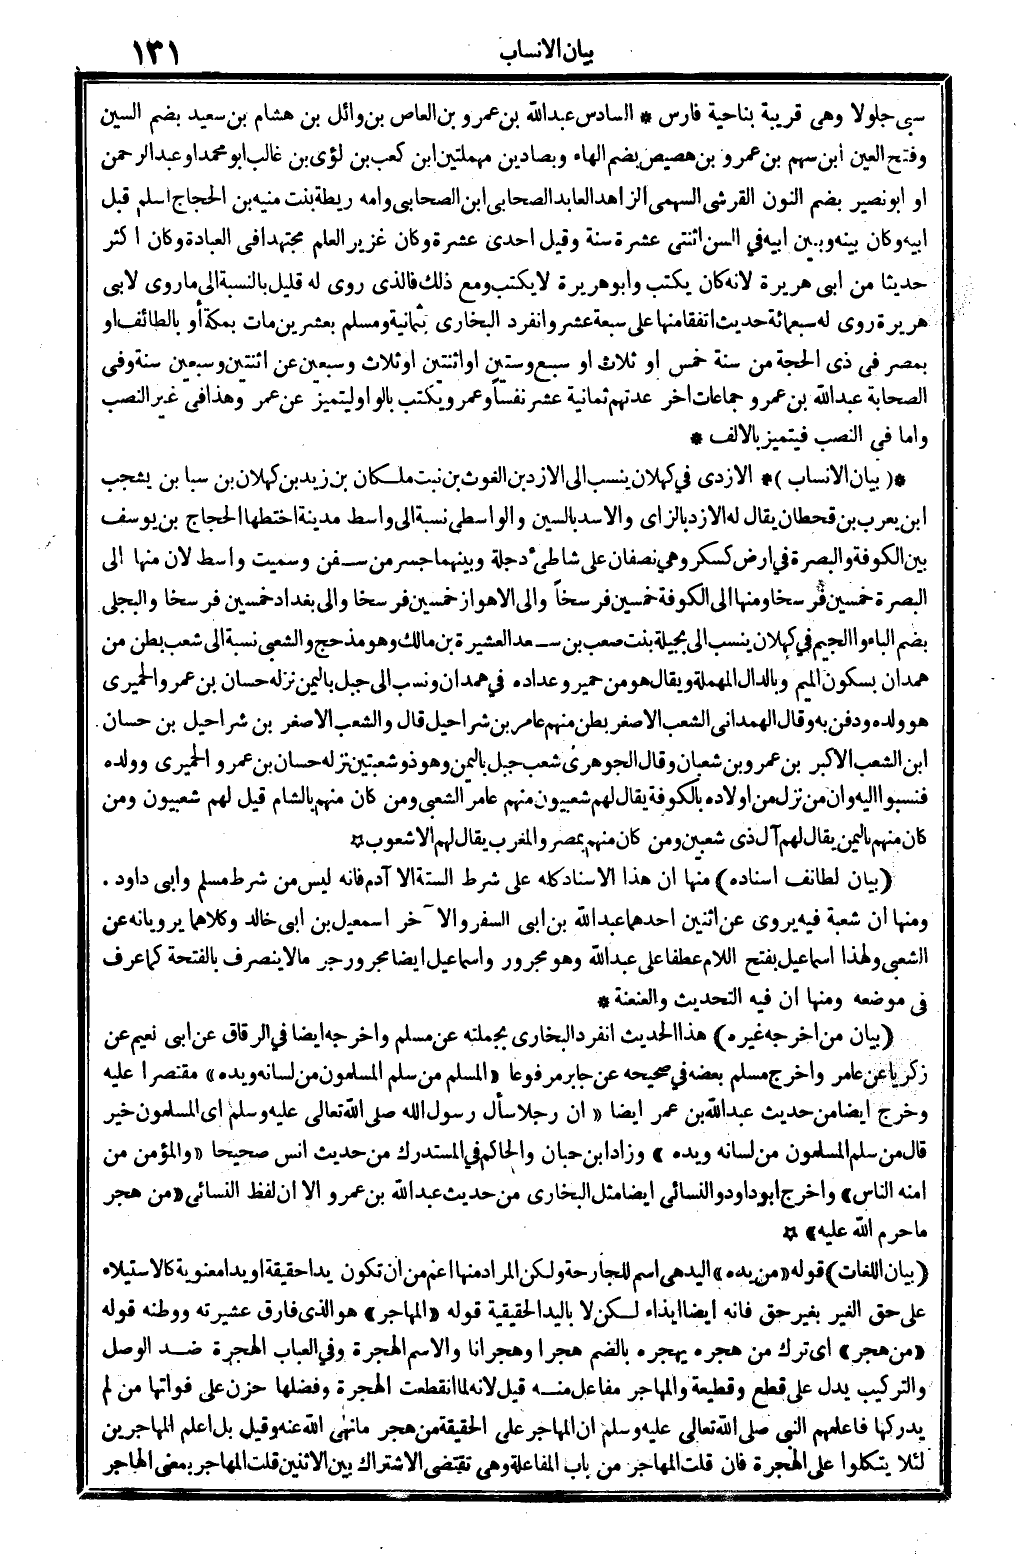 بيان الانساب
١٣١
سبى جلولا وهى قريبة بناحية فارس * السادس عبدالله بن عمرو بن العاص بن وائل بن هشام بن سعيد بضم السين
وفتح العين ابن سهم بن عمرو بن هصيص بضم الهاء وبصادين مهملتين ابن كعب بن لؤى بن غالب ابو محمد او عبد الرحمن
او ابو نصير بضم النون القرشى السهمى الزاهد العابد الصحابى ابن الصحابى وامه ريطة بنت منبه بن الحجاج اسلم قبل
ابيه وكان بينه وبين ابيه في السن اثنتى عشرة سنة وقيل احدى عشرة وكان غزير العلم مجتهدا فى العبادة وكان اكثر
حديثا من ابى هريرة لانه كان يكتب وابو هريرة لا يكتب ومع ذلك فالذى روى له قليل بالنسبة الى ما روى لابى
هريرة روى له سبعمائة حديث اتفقا منها على سبعة عشر وانفرد البخارى بثمانية ومسلم بعشرين مات بمكة أو بالطائف او
بمصر فى ذى الحجة من سنة خمس او ثلاث او سبع وستين او اثنتين او ثلاث وسبعين عن اثنتين وسبعين سنة وفى
الصحابة عبدالله بن عمرو جماعات اخر عدتهم ثمانية عشر نفساً وعمرو يكتب بالواو ليتميز عن عمر وهذا فى غير النصب
واما فى النصب فيتميز بالالف *
*( بيان الانساب )* الازدى فى كهلان ينسب الى الازد بن الغوث بن نبت ملكان بن زيد بن كهلان بن سبا بن يشجب
ابن يعرب بن قحطان يقال له الازد بالزاى والاسد بالسين والواسطى نسبة الى واسط مدينة اختطها الحجاج بن يوسف
بين الكوفة والبصرة فى ارض كسكر وهى نصفان على شاطئ دجلة وبينهما جسر من سفن وسميت واسط لان منها الى
البصرة خمسين فرسخا ومنها الى الكوفة خمسين فرسخاً والى الاهواز خمسين فرسخا والى بغداد خمسين فرسخا والبجلى
بضم الباء والجيم فى كهلان ينسب الى بجيلة بنت صعب بن سعد العشيرة بن مالك وهو مذحج والشعبى نسبة الى شعب بطن من
همدان بسكون الميم وبالدال المهملة ويقال هو من حمير وعداده فى همدان ونسب الى جبل باليمن نزله حسان بن عمرو الحميرى
هو وولده ودفن به وقال الهمدانى الشعب الاصغر بطن منهم عامر بن شراحيل قال والشعب الاصغر بن شراحيل بن حسان
ابن الشعب الاكبر بن عمرو بن شعبان وقال الجوهرى شعب جبل باليمن وهو ذو شعبتين نزله حسان بن عمرو الحميرى وولده
فنسبوا اليه وان من نزل من اولاده بالكوفة يقال لهم شعبيون منهم عامر الشعبى ومن كان منهم بالشام قيل لهم شعبيون ومن
كان منهم باليمن يقال لهم آل ذى شعبين ومن كان منهم بمصر والمغرب يقال لهم الاشعوب ¤
(بيان لطائف اسناده) منها ان هذا الاسناد كله على شرط الستة الا آدم فانه ليس من شرط مسلم وابى داود .
ومنها ان شعبة فيه يروى عن اثنين احدهما عبدالله بن ابى السفر والآخر اسمعيل بن ابى خالد وكلاهما يرويانه عن
الشعبى ولهذا اسماعيل بفتح اللام عطفا على عبدالله وهو مجرور واسماعيل ايضا مجرور جر مالا ينصرف بالفتحة كما عرف
فى موضعه ومنها ان فيه التحديث والعنعنة *
(بيان من اخرجه غيره) هذا الحديث انفرد البخارى بجملته عن مسلم واخرجه ايضا فى الرقاق عن ابى نعيم عن
زكريا عن عامر واخرج مسلم بعضه فى صحيحه عن جابر مرفوعا «المسلم من سلم المسلمون من لسانه ويده» مقتصرا عليه
وخرج ايضا من حديث عبدالله بن عمر ايضا « ان رجلا سأل رسول الله صلى الله تعالى عليه وسلم اى المسلمون خير
قال من سلم المسلمون من لسانه ويده » وزاد ابن حبان والحاكم فى المستدرك من حديث انس صحيحا «والمؤمن من
امنه الناس» واخرج ابو داود والنسائى ايضا مثل البخارى من حديث عبدالله بن عمرو الا ان لفظ النسائى «من هجر
ما حرم الله عليه» ¤
(بيان اللغات) قوله «من يده» اليد هى اسم للجارحة ولكن المراد منها اعم من ان تكون يدا حقيقة او يدا معنوية كالاستيلاء
على حق الغير بغير حق فانه ايضا ايذاء لكن لا باليد الحقيقية قوله «المهاجر» هو الذى فارق عشيرته ووطنه قوله
«من هجر» اى ترك من هجره يهجره بالضم هجرا وهجرانا والاسم الهجرة وفى العباب الهجرة ضد الوصل
والتركيب يدل على قطع وقطيعة والمهاجر مفاعل منه قيل لانه لما انقطعت الهجرة وفضلها حزن على فواتها من لم
يدركها فاعلمهم النبى صلى الله تعالى عليه وسلم ان المهاجر على الحقيقة من هجر ما نهى الله عنه وقيل بل اعلم المهاجرين
لئلا يتكلوا على الهجرة فان قلت المهاجر من باب المفاعلة وهى تقتضى الاشتراك بين الاثنين قلت المهاجر بمعنى الهاجر